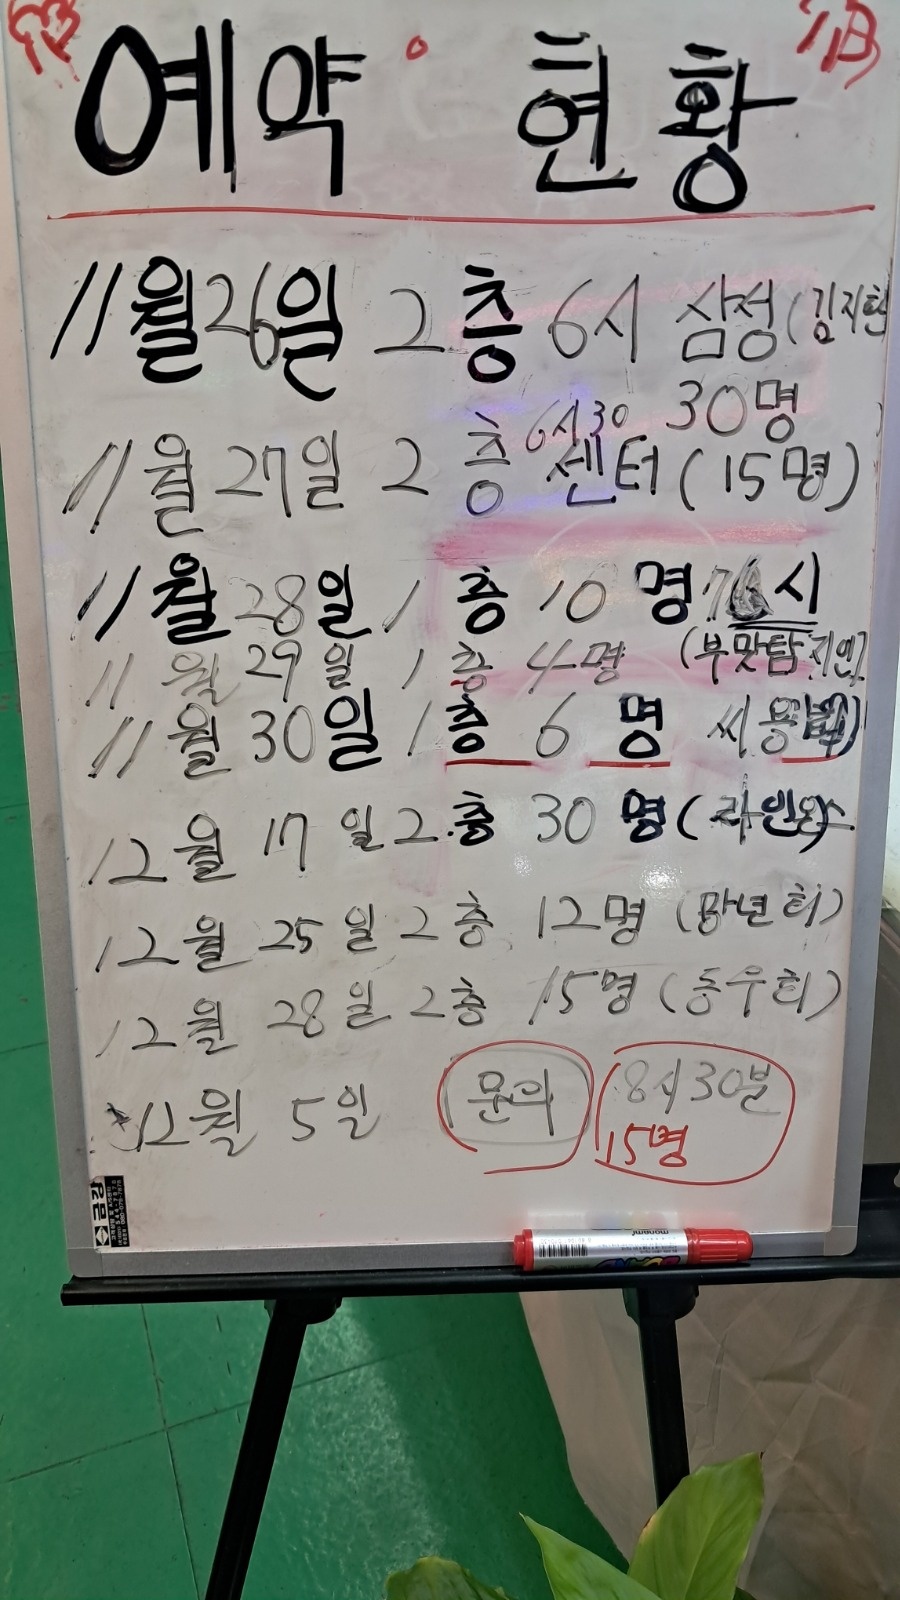 예약 현황
11월 26일 2층 6시 삼정(김지현
30명
6시30
11월 27일 2층 센터(15명)
11월 28일 1층 10명 시
(부맛탐 지연)
11월 29일 1층 4명
11월 30일 1층 6명 씨용
12월 17일 2층 30명(라인
12월 25일 2층 12명 (망년회)
12월 28일 2층 15명 (총우회)
12월 5일 문의 8시30분
15명
monami